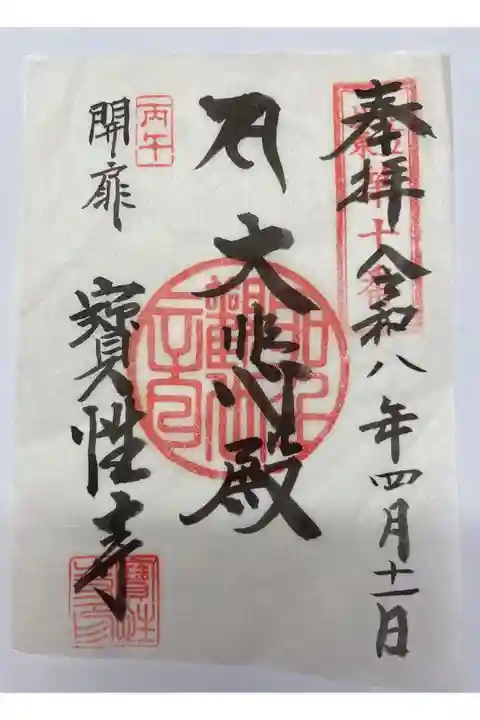 奉拝 令和八年四月十一日
第十番
大悲殿
丙午
開扉
寶性寺